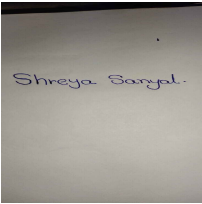 Shreya Sanyal.